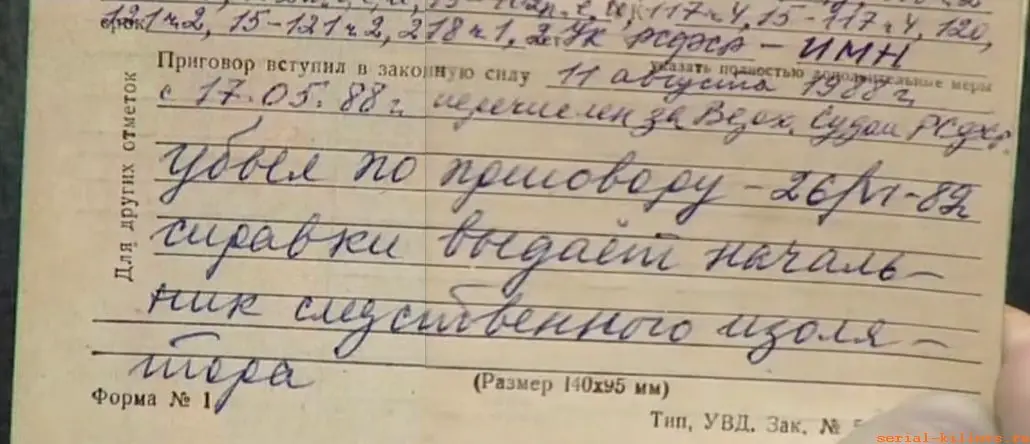 117 ч 4, 15-117 ч 4, 120,
срок
121 ч 2, 15-121 ч 2, 218 ч 1, 2 УК РСФСР - ИМН
указать полностью дополнительные меры
Приговор вступил в законную силу 11 августа 1988 г.
с 17.05.88 г. перечислен за Верх. Судом РСФСР.
Для других отметок
убыл по приговору - 26/VI-89г
справки выдаёт началь-
ник следственного изоля-
тора
Форма № 1
(Размер 140х95 мм)
Тип. УВД. Зак. №